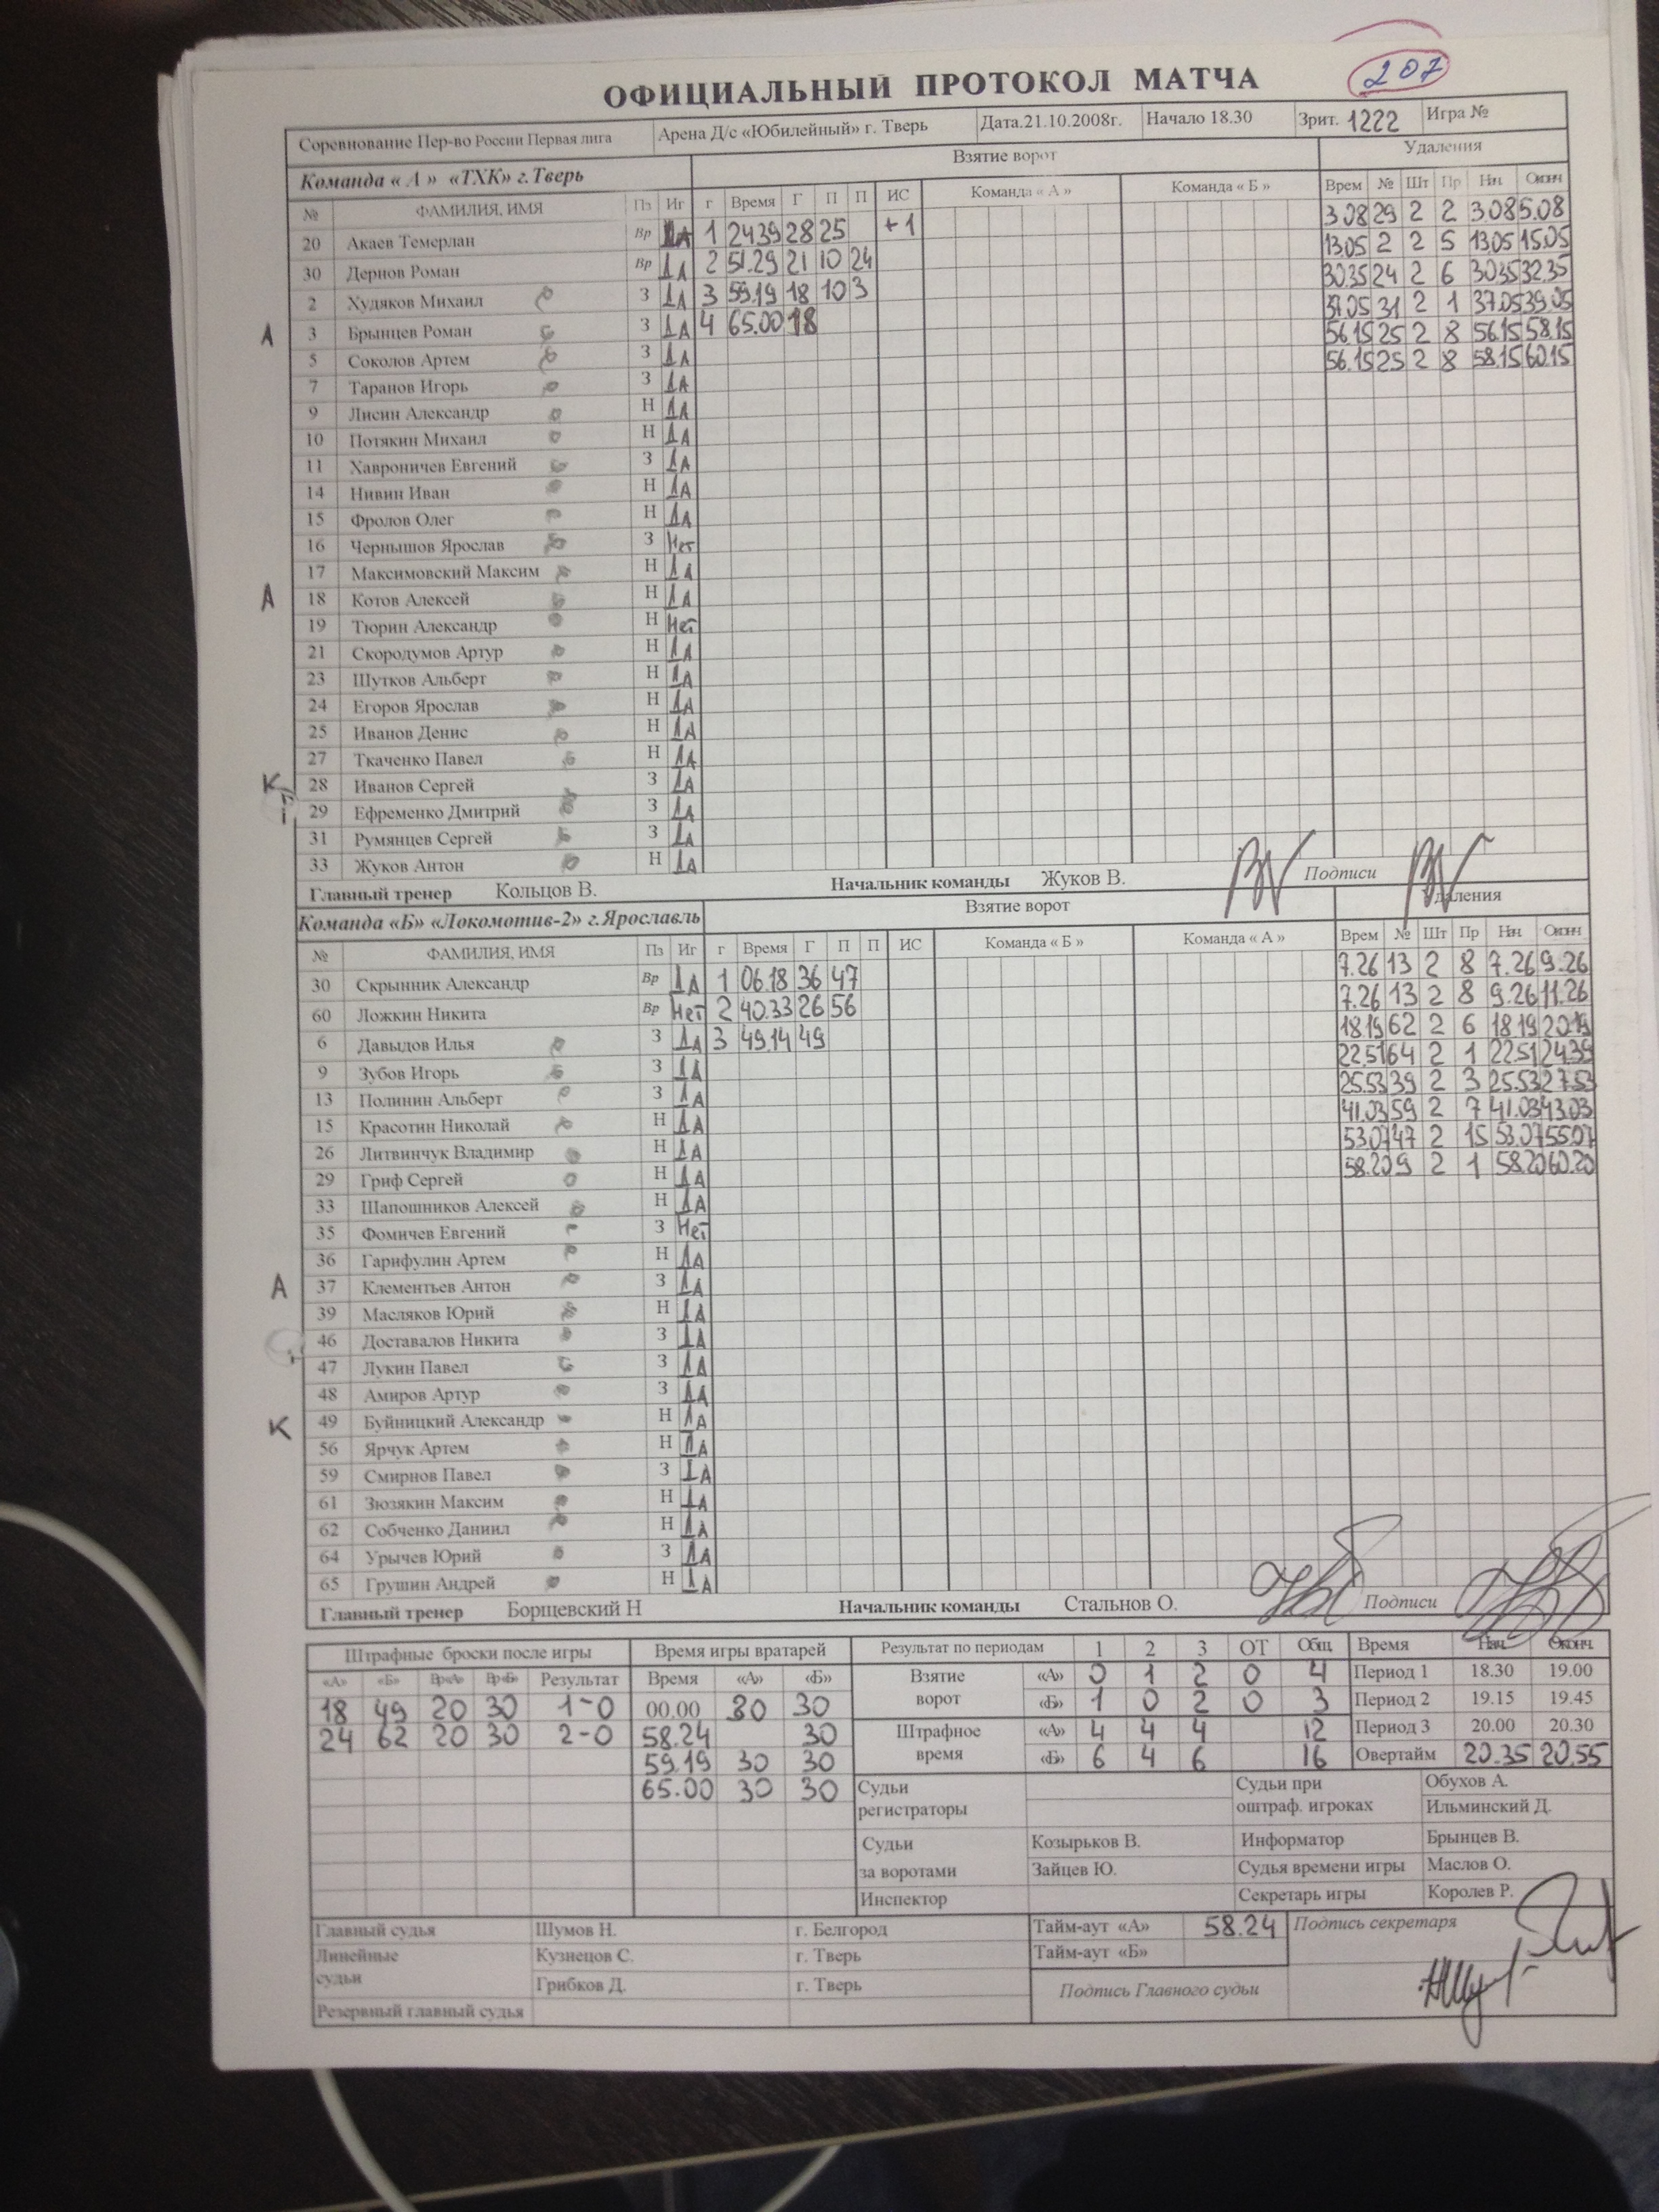 207
ОФИЦИАЛЬНЫЙ ПРОТОКОЛ МАТЧА
Соревнование Пер-во России Первая лига Арена Д/с «Юбилейный» г. Тверь Дата.21.10.2008г. Начало 18.30 Зрит. 1222 Игра №
Команда « А » «ТХК» г.Тверь Взятие ворот Удаления
№ ФАМИЛИЯ, ИМЯ Пз Иг г Время Г П П ИС Команда « А » Команда « Б » Врем № Шт Пр Нач Оконч
20 Акаев Темерлан Вр ДА 1 24.39 28 25 +1 3.08 29 2 2 3.08 5.08
30 Дернов Роман Вр ДА 2 51.29 21 10 24 13.05 2 2 5 13.05 15.05
2 Худяков Михаил З ДА 3 59.19 18 10 3 30.35 24 2 6 30.35 32.35
А 3 Брынцев Роман З ДА 4 65.00 18 37.05 31 2 1 37.05 39.05
5 Соколов Артем З ДА 56.15 25 2 8 56.15 58.15
7 Таранов Игорь З ДА 56.15 25 2 8 58.15 60.15
9 Лисин Александр Н ДА
10 Потякин Михаил Н ДА
11 Хавроничев Евгений З ДА
14 Нивин Иван Н ДА
15 Фролов Олег Н ДА
16 Чернышов Ярослав З Нет
17 Максимовский Максим Н ДА
А 18 Котов Алексей Н ДА
19 Тюрин Александр Н Нет
21 Скородумов Артур Н ДА
23 Шутков Альберт Н ДА
24 Егоров Ярослав Н ДА
25 Иванов Денис Н ДА
27 Ткаченко Павел Н ДА
К 28 Иванов Сергей З ДА
29 Ефременко Дмитрий З ДА
31 Румянцев Сергей З ДА
33 Жуков Антон Н ДА
Главный тренер Кольцов В. Начальник команды Жуков В. Подписи
Команда «Б» «Локомотив-2» г.Ярославль Взятие ворот Удаления
№ ФАМИЛИЯ, ИМЯ Пз Иг г Время Г П П ИС Команда « Б » Команда « А » Врем № Шт Пр Нач Оконч
30 Скрынник Александр Вр ДА 1 06.18 36 47 7.26 13 2 8 7.26 9.26
60 Ложкин Никита Вр Нет 2 40.33 26 56 7.26 13 2 8 9.26 11.26
6 Давыдов Илья З ДА 3 49.14 49 18.19 62 2 6 18.19 20.19
9 Зубов Игорь З ДА 22.51 64 2 1 22.51 24.39
13 Полинин Альберт З ДА 25.53 39 2 3 25.53 27.53
15 Красотин Николай Н ДА 41.03 59 2 7 41.03 43.03
26 Литвинчук Владимир Н ДА 53.07 47 2 15 53.07 55.07
29 Гриф Сергей Н ДА 58.20 9 2 1 58.20 60.20
33 Шапошников Алексей Н ДА
35 Фомичев Евгений З Нет
36 Гарифулин Артем Н ДА
А 37 Клементьев Антон З ДА
39 Масляков Юрий Н ДА
46 Доставалов Никита З ДА
47 Лукин Павел З ДА
48 Амиров Артур З ДА
К 49 Буйницкий Александр Н ДА
56 Ярчук Артем Н ДА
59 Смирнов Павел З ДА
61 Зюзякин Максим Н ДА
62 Собченко Даниил Н ДА
64 Урычев Юрий З ДА
65 Грушин Андрей Н ДА
Главный тренер Борщевский Н Начальник команды Стальнов О. Подписи
Штрафные броски после игры Время игры вратарей Результат по периодам 1 2 3 ОТ Общ Время Нач. Оконч.
«А» «Б» Вр«А» Вр«Б» Результат Время «А» «Б» Взятие ворот «А» 0 1 2 0 4 Период 1 18.30 19.00
18 49 20 30 1-0 00.00 30 30 «Б» 1 0 2 0 3 Период 2 19.15 19.45
24 62 20 30 2-0 58.24 30 Штрафное время «А» 4 4 4 12 Период 3 20.00 20.30
59.19 30 30 «Б» 6 4 6 16 Овертайм 20.35 20.55
65.00 30 30 Судьи регистраторы Судьи при оштраф. игроках Обухов А.
Ильминский Д.
Судьи за воротами Козырьков В. Информатор Брынцев В.
Зайцев Ю. Судья времени игры Маслов О.
Инспектор Секретарь игры Королев Р.
Главный судья Шумов Н. г. Белгород Тайм-аут «А» 58.24 Подпись секретаря
Линейные судьи Кузнецов С. г. Тверь Тайм-аут «Б»
Грибков Д. г. Тверь Подпись Главного судьи
Резервный главный судья